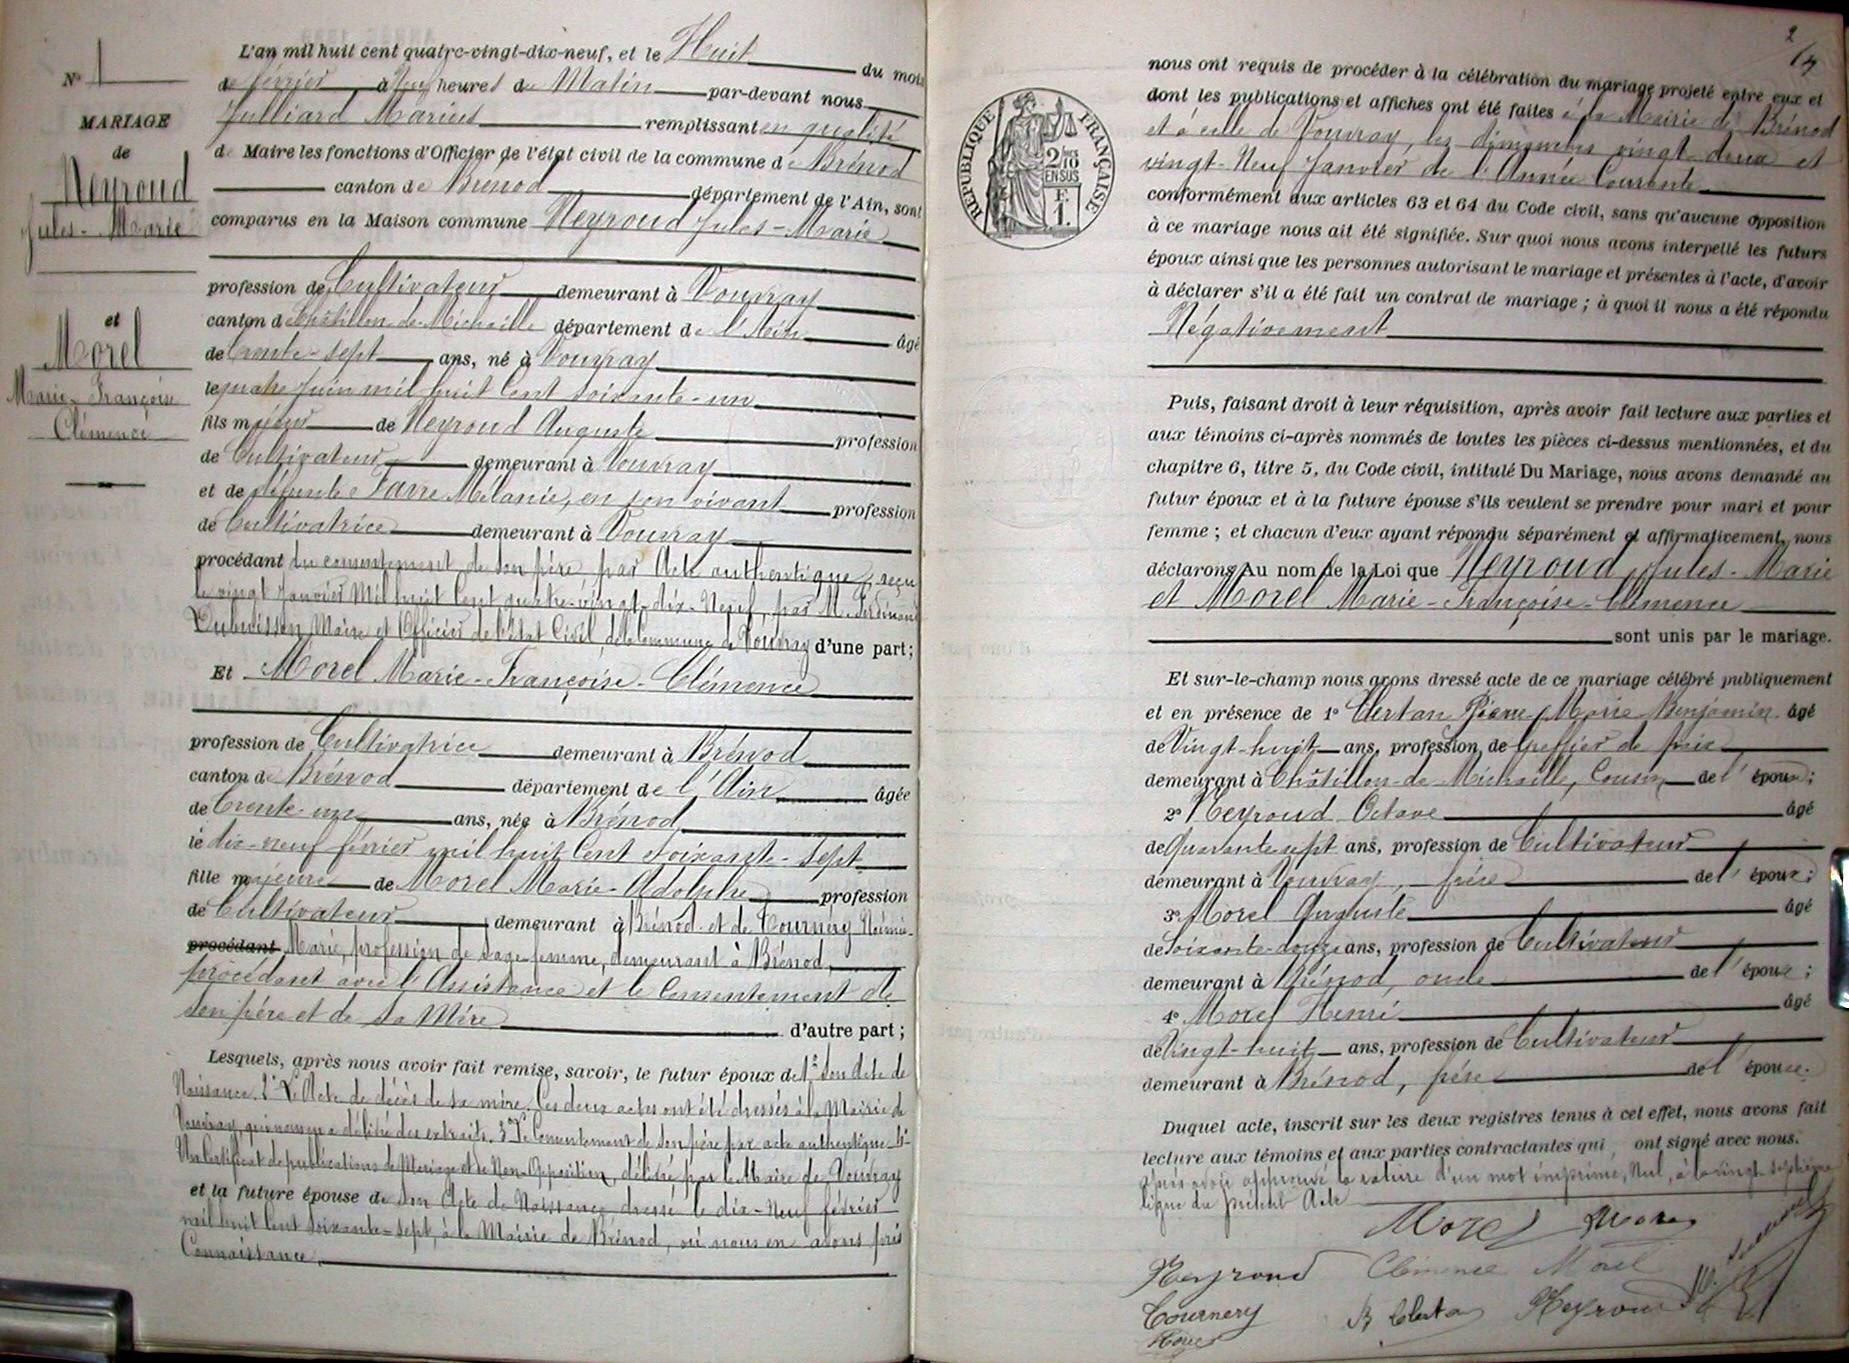 N° 1
MARIAGE
de
Neyroud
Jules-Marie
et
Morel
Marie-Françoise
Clémence
L'an mil huit cent quatre-vingt-dix-neuf, et le Huit du mois
de février à Neuf heures du Matin par-devant nous
Julliard Marius remplissant en qualité
de Maire les fonctions d'Officier de l'état civil de la commune de Brénod
canton de Brénod département de l'Ain, sont
comparus en la Maison commune Neyroud Jules-Marie
profession de Cultivateur demeurant à Vouvray
canton de Châtillon-de-Michaille département de l'Ain âgé
de trente-sept ans, né à Vouvray
le quatre juin mil huit cent soixante-un
fils majeur de Neyroud Auguste profession
de Cultivateur demeurant à Vouvray
et de défunte Favre Mélanie, en son vivant profession
de Cultivatrice demeurant à Vouvray
procédant du consentement de son père par Acte authentique, reçu
le vingt Janvier Mil huit Cent quatre-vingt-dix-Neuf, par M. Ferdinand
Dubuisson, Maire et Officier de l'état Civil, de la Commune de Vouvray d'une part;
Et Morel Marie-Françoise-Clémence
profession de Cultivatrice demeurant à Brénod
canton de Brénod département de l'Ain âgée
de trente-un ans, née à Brénod
le dix-neuf février mil huit Cent soixante-sept
fille majeure de Morel Marie-Adolphe profession
de Cultivateur demeurant à Brénod et de Tournery
procédant Marie, profession de sage-femme, demeurant à Brénod,
procédant avec l'Assistance et le Consentement de
son père et de sa Mère d'autre part;
Lesquels, après nous avoir fait remise, savoir, le futur époux de 1° Son Acte de
Naissance. 2° L'Acte de décès de sa mère. Ces deux actes ont été dressés à la Mairie de
Vouvray, qui nous en a délivré des extraits. 3° Le Consentement de son père par acte authentique. 4°
Un Certificat de publications de Mariage et de Non-Opposition, délivré par le Maire de Vouvray
et la future épouse de Son Acte de Naissance dressé le dix-Neuf février
mil huit Cent soixante-sept, à la Mairie de Brénod, où nous en avons pris
Connaissance.
2
RÉPUBLIQUE FRANÇAISE
2/10
EN SUS
F.
1.
nous ont requis de procéder à la célébration du mariage projeté entre eux et
dont les publications et affiches ont été faites à la Mairie de Brénod
et à celle de Vouvray, les dimanches vingt-deux et
vingt-Neuf Janvier de l'Année Courante
conformément aux articles 63 et 64 du Code civil, sans qu'aucune opposition
à ce mariage nous ait été signifiée. Sur quoi nous avons interpellé les futurs
époux ainsi que les personnes autorisant le mariage et présentes à l'acte, d'avoir
à déclarer s'il a été fait un contrat de mariage; à quoi il nous a été répondu
Négativement
Puis, faisant droit à leur réquisition, après avoir fait lecture aux parties et
aux témoins ci-après nommés de toutes les pièces ci-dessus mentionnées, et du
chapitre 6, titre 5, du Code civil, intitulé Du Mariage, nous avons demandé au
futur époux et à la future épouse s'ils veulent se prendre pour mari et pour
femme; et chacun d'eux ayant répondu séparément et affirmativement, nous
déclarons Au nom de la Loi que Neyroud Jules-Marie
et Morel Marie-Françoise-Clémence
sont unis par le mariage.
Et sur-le-champ nous avons dressé acte de ce mariage célébré publiquement
et en présence de 1° Pierre Marie Benjamin âgé
de Vingt-huit ans, profession de Greffier de paix
demeurant à Châtillon-de-Michaille, Cousin de l'époux;
2° Neyroud Octave âgé
de Quarante-sept ans, profession de Cultivateur
demeurant à Vouvray, frère de l'époux;
3° Morel Auguste âgé
de Soixante-douze ans, profession de Cultivateur
demeurant à Brénod, oncle de l'épouse;
4° Morel Henri âgé
de Vingt-huit ans, profession de Cultivateur
demeurant à Brénod, frère de l'épouse.
Duquel acte, inscrit sur les deux registres tenus à cet effet, nous avons fait
lecture aux témoins et aux parties contractantes qui ont signé avec nous.
après avoir approuvé la rature d'un mot imprimé, Nul, à la vingt-septième
ligne du présent Acte
Morel Morel
Neyroud Clémence Morel
Tournery B Neyroud
Morel